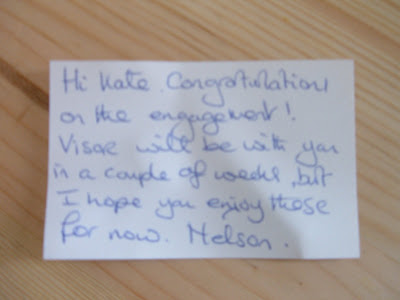 Hi Kate. Congratulations
on the engagement!
Visae will be with you
in a couple of weeks, but
I hope you enjoy these
for now. Nelson.